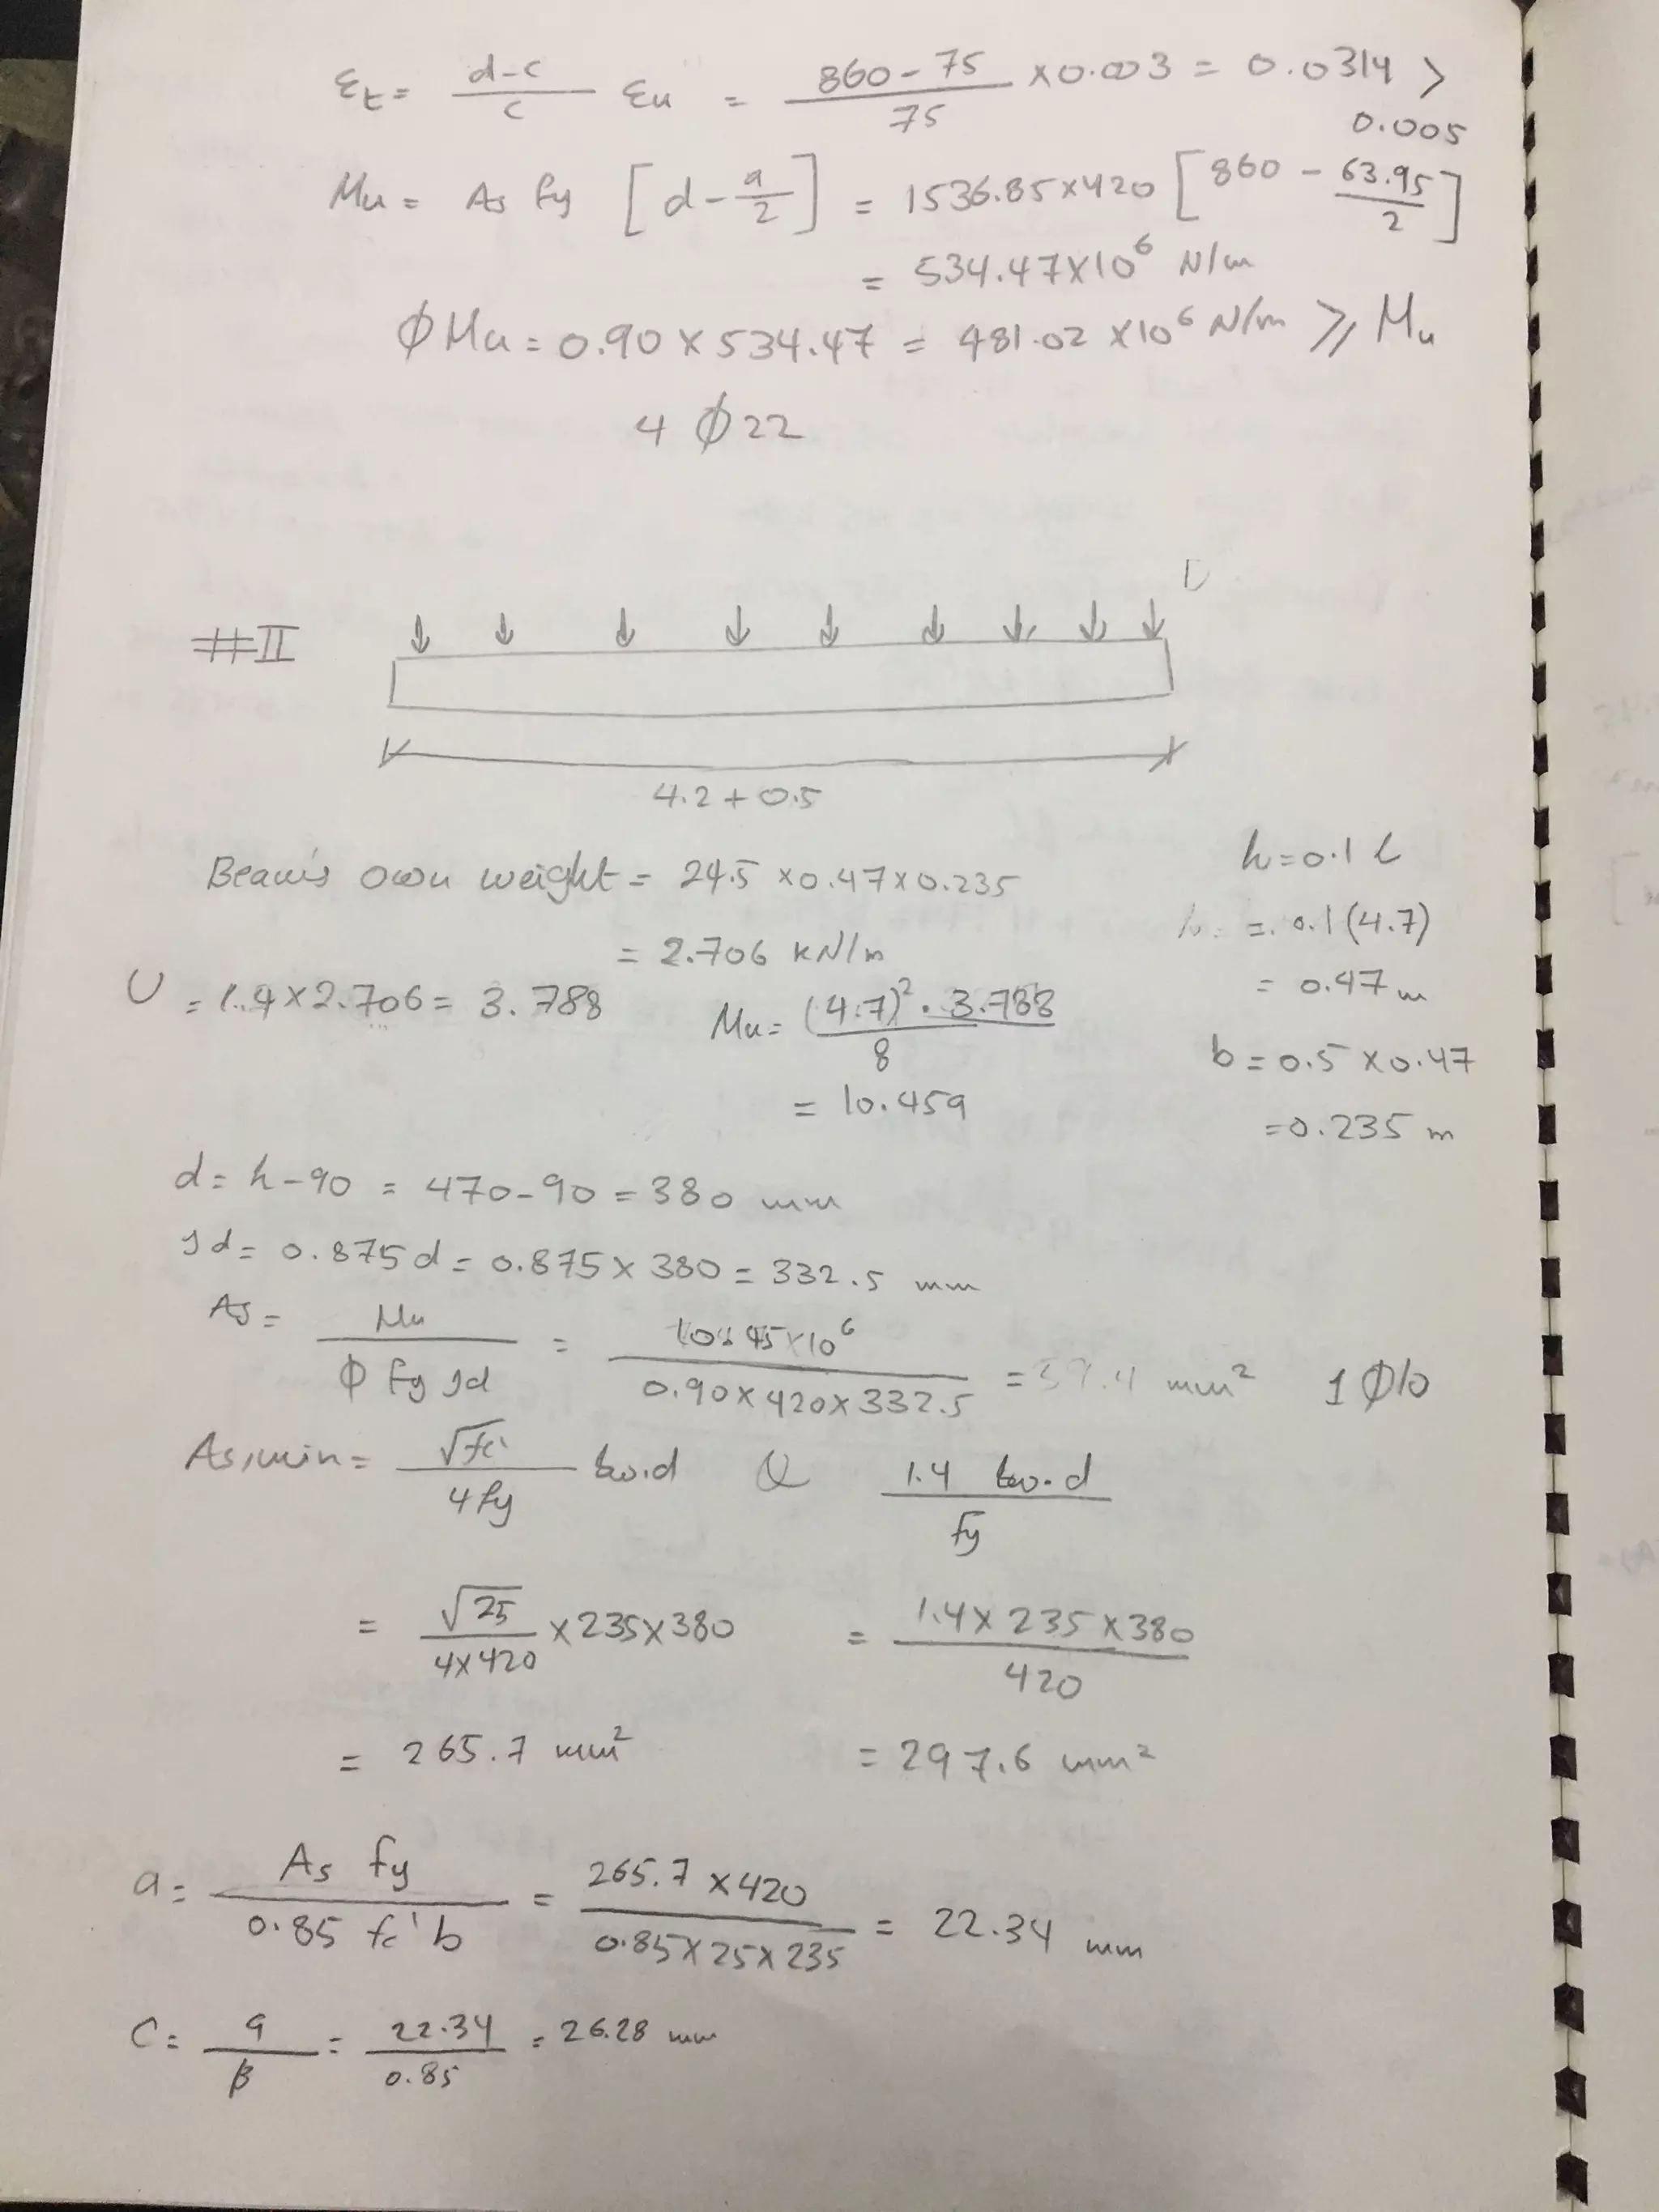 εt = d-c / c εu = 860-75 / 75 × 0.003 = 0.0314 >
0.005
Mu = As fy [d - a/2] = 1536.85×420 [860 - 63.95/2]
= 534.47×10⁶ N/m
ϕMu = 0.90 × 534.47 = 481.02 ×10⁶ N/m ⩾ Mu
4 ϕ22
#II
4.2 + 0.5
Beam's own weight = 24.5 ×0.47×0.235
= 2.706 kN/m
h = 0.1 l
= 0.1(4.7)
= 0.47 m
U = 1.4×2.706 = 3.788
Mu = (4.7)² · 3.788 / 8
= 10.459
b = 0.5 × 0.47
= 0.235 m
d = h - 90 = 470 - 90 = 380 mm
Jd = 0.875 d = 0.875 × 380 = 332.5 mm
As = Mu / ϕ fy Jd = ×10⁶ / 0.90×420×332.5 = mm² 1 ϕ10
As,min = √fc' / 4fy bw.d & 1.4 bw.d / fy
= √25 / 4×420 ×235×380 = 1.4× 235 ×380 / 420
= 265.7 mm² = 297.6 mm²
a = As fy / 0.85 fc' b = 265.7 ×420 / 0.85×25×235 = 22.34 mm
C = a / β = 22.34 / 0.85 = 26.28 mm